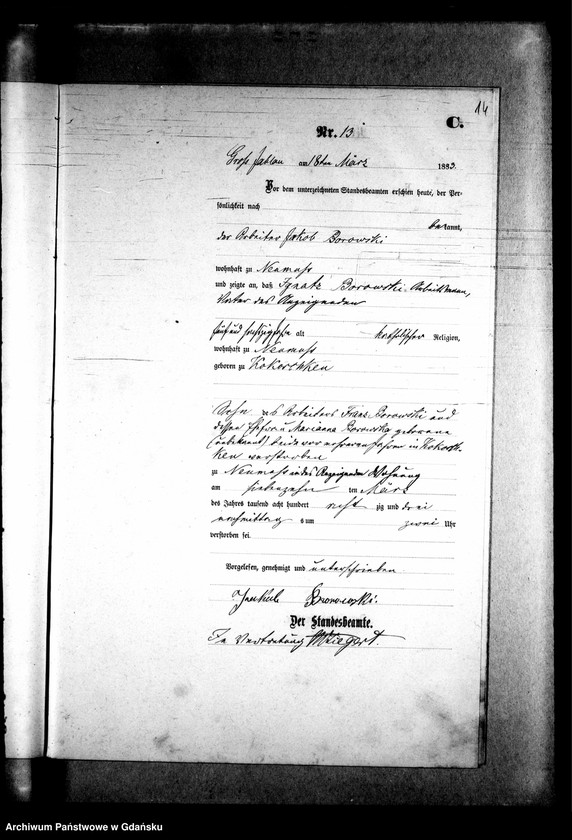 14
C.
Nr. 13
Groß Jablau am 18ten März 1883.
Vor dem unterzeichneten Standesbeamten erschien heute, der Per-
sönlichkeit nach
bekannt,
der Arbeiter Jakob Borowski
wohnhaft zu Neumuss
und zeigte an, daß Ignatz Borowski Arbeitsmann,
Vater des Anzeigenden
fünfundsechszig Jahre alt katholischer Religion,
wohnhaft zu Neumuss
geboren zu Kokoschken
Sohn des Arbeiters Franz Borowski und
dessen Ehefrau Marianna Borowska geborene
(unbekannt) beide vor mehreren Jahren in Kokosch-
ken verstorben
zu Neumuss in des Anzeigenden Wohnung
am siebenzehn ten März
des Jahres tausend acht hundert acht zig und drei
nachmittag s um zwei Uhr
verstorben sei.
Vorgelesen, genehmigt und unterschrieben
Jankub Borowski.
Der Standesbeamte.
In Vertretung
Archiwum Państwowe w Gdańsku